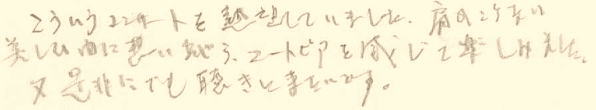 こういうコンサートを熱望していました。肩のこらない
美しい曲に思いを馳せ、ユートピアを感じて楽しみました。
又是非にでも聴きに来たいです。